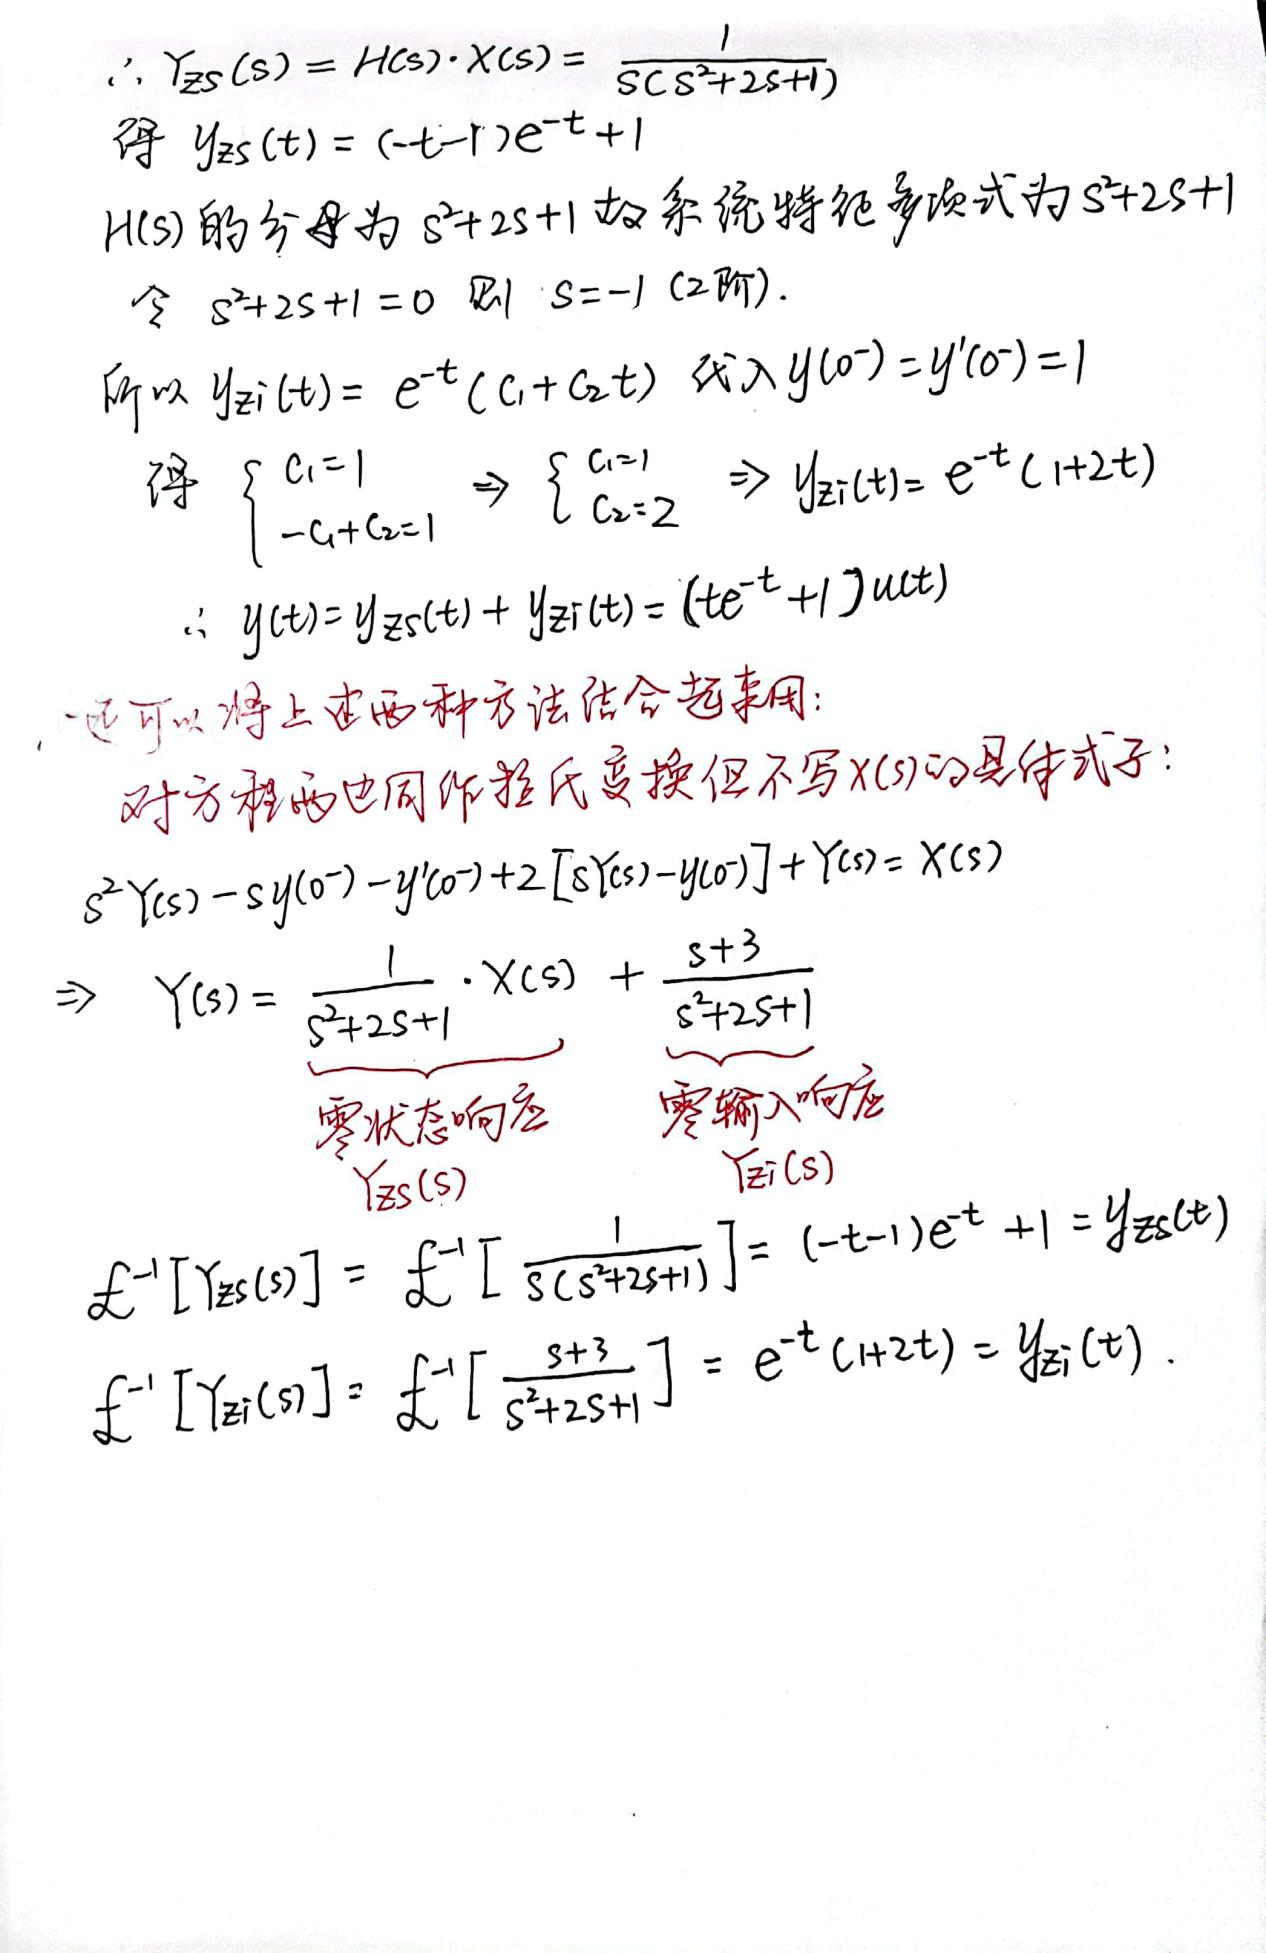 ∴ Yzs(s) = H(s)·X(s) = 1/(s(s²+2s+1))
得 yzs(t) = (-t-1)e^-t + 1
H(s)的分母为 s²+2s+1 故系统特征多项式为 s²+2s+1
令 s²+2s+1=0 则 s=-1 (2阶).
所以 yzi(t) = e^-t (C₁+C₂t) 代入 y(0⁻)=y'(0⁻)=1
得 { C₁=1, -C₁+C₂=1 ⇒ { C₁=1, C₂=2 ⇒ yzi(t) = e^-t (1+2t)
∴ y(t) = yzs(t) + yzi(t) = (te^-t +1]u(t)
还可以将上述两种方法结合起来用:
对方程两边同作拉氏变换但不写X(s)的具体式子:
s²Y(s) - sy(0⁻) - y'(0⁻) + 2[sY(s) - y(0⁻)] + Y(s) = X(s)
⇒ Y(s) = 1/(s²+2s+1) · X(s) + (s+3)/(s²+2s+1)
零状态响应 零输入响应
Yzs(s) Yzi(s)
£⁻¹[Yzs(s)] = £⁻¹[1/(s(s²+2s+1))] = (-t-1)e^-t +1 = yzs(t)
£⁻¹[Yzi(s)] = £⁻¹[(s+3)/(s²+2s+1)] = e^-t (1+2t) = yzi(t).